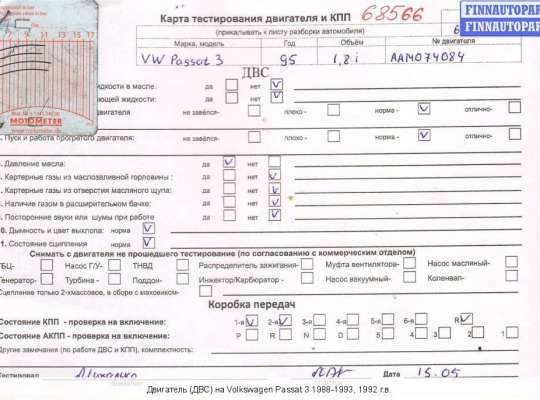 Карта тестирования двигателя и КПП 68566
FINNAUTOPAR
(прикалывать к листу разборки автомобиля)
FINNAUTOPAR
Марка, модель Год Объём № двигателя
VW Passat 3 95 1,8 i AAM074084
ДВС
жидкости в масле. да нет
ющей жидкости: да нет
двигателя не завёлся- плохо - норма - отлично-
. Пуск и работа прогретого двигателя: не завёлся- плохо - норма - отлично-
. Давление масла: да нет
. Картерные газы из маслозаливной горловины : да нет
. Картерные газы из отверстия масляного щупа: да нет
. Наличие газов в расширительном бачке: да нет
. Посторонние звуки или шумы при работе да нет
0. Дымность и цвет выхлопа: норма
1. Состояние сцепления норма
Снимать с двигателя не прошедшего тестирование (по согласованию с коммерческим отделом)
ГБЦ- Насос Г/У- ТНВД Распределитель зажигания- Муфта вентилятора- Насос масляный-
Генератор- Турбина - Поддон- Инжектор/Карбюратор - Насос вакуумный- Коленвал-
Сцепление только 2-хмассовое, в сборе с маховиком-
Коробка передач
Состояние КПП - проверка на включение: 1-я 2-я 3-я 4-я 5-я 6-я R
Состояние АКПП - проверка на включение: P R N D 5 4 3 2 1
Другие замечания (по работе ДВС и КПП), комплектность:
Тестировал Дата 15.05
MOTOMETER
www.motometer.de
Двигатель (ДВС) на Volkswagen Passat 3 1988-1993, 1992 г.в.